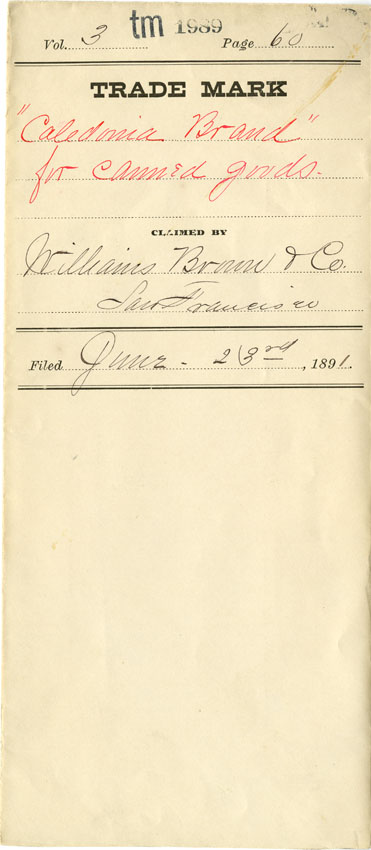 tm 1989
Vol. 3 Page 60
TRADE MARK
"Caledonia Brand"
for canned goods.
CLAIMED BY
Williams Brown & Co.
San Francisco
Filed June - 23rd, 1891.